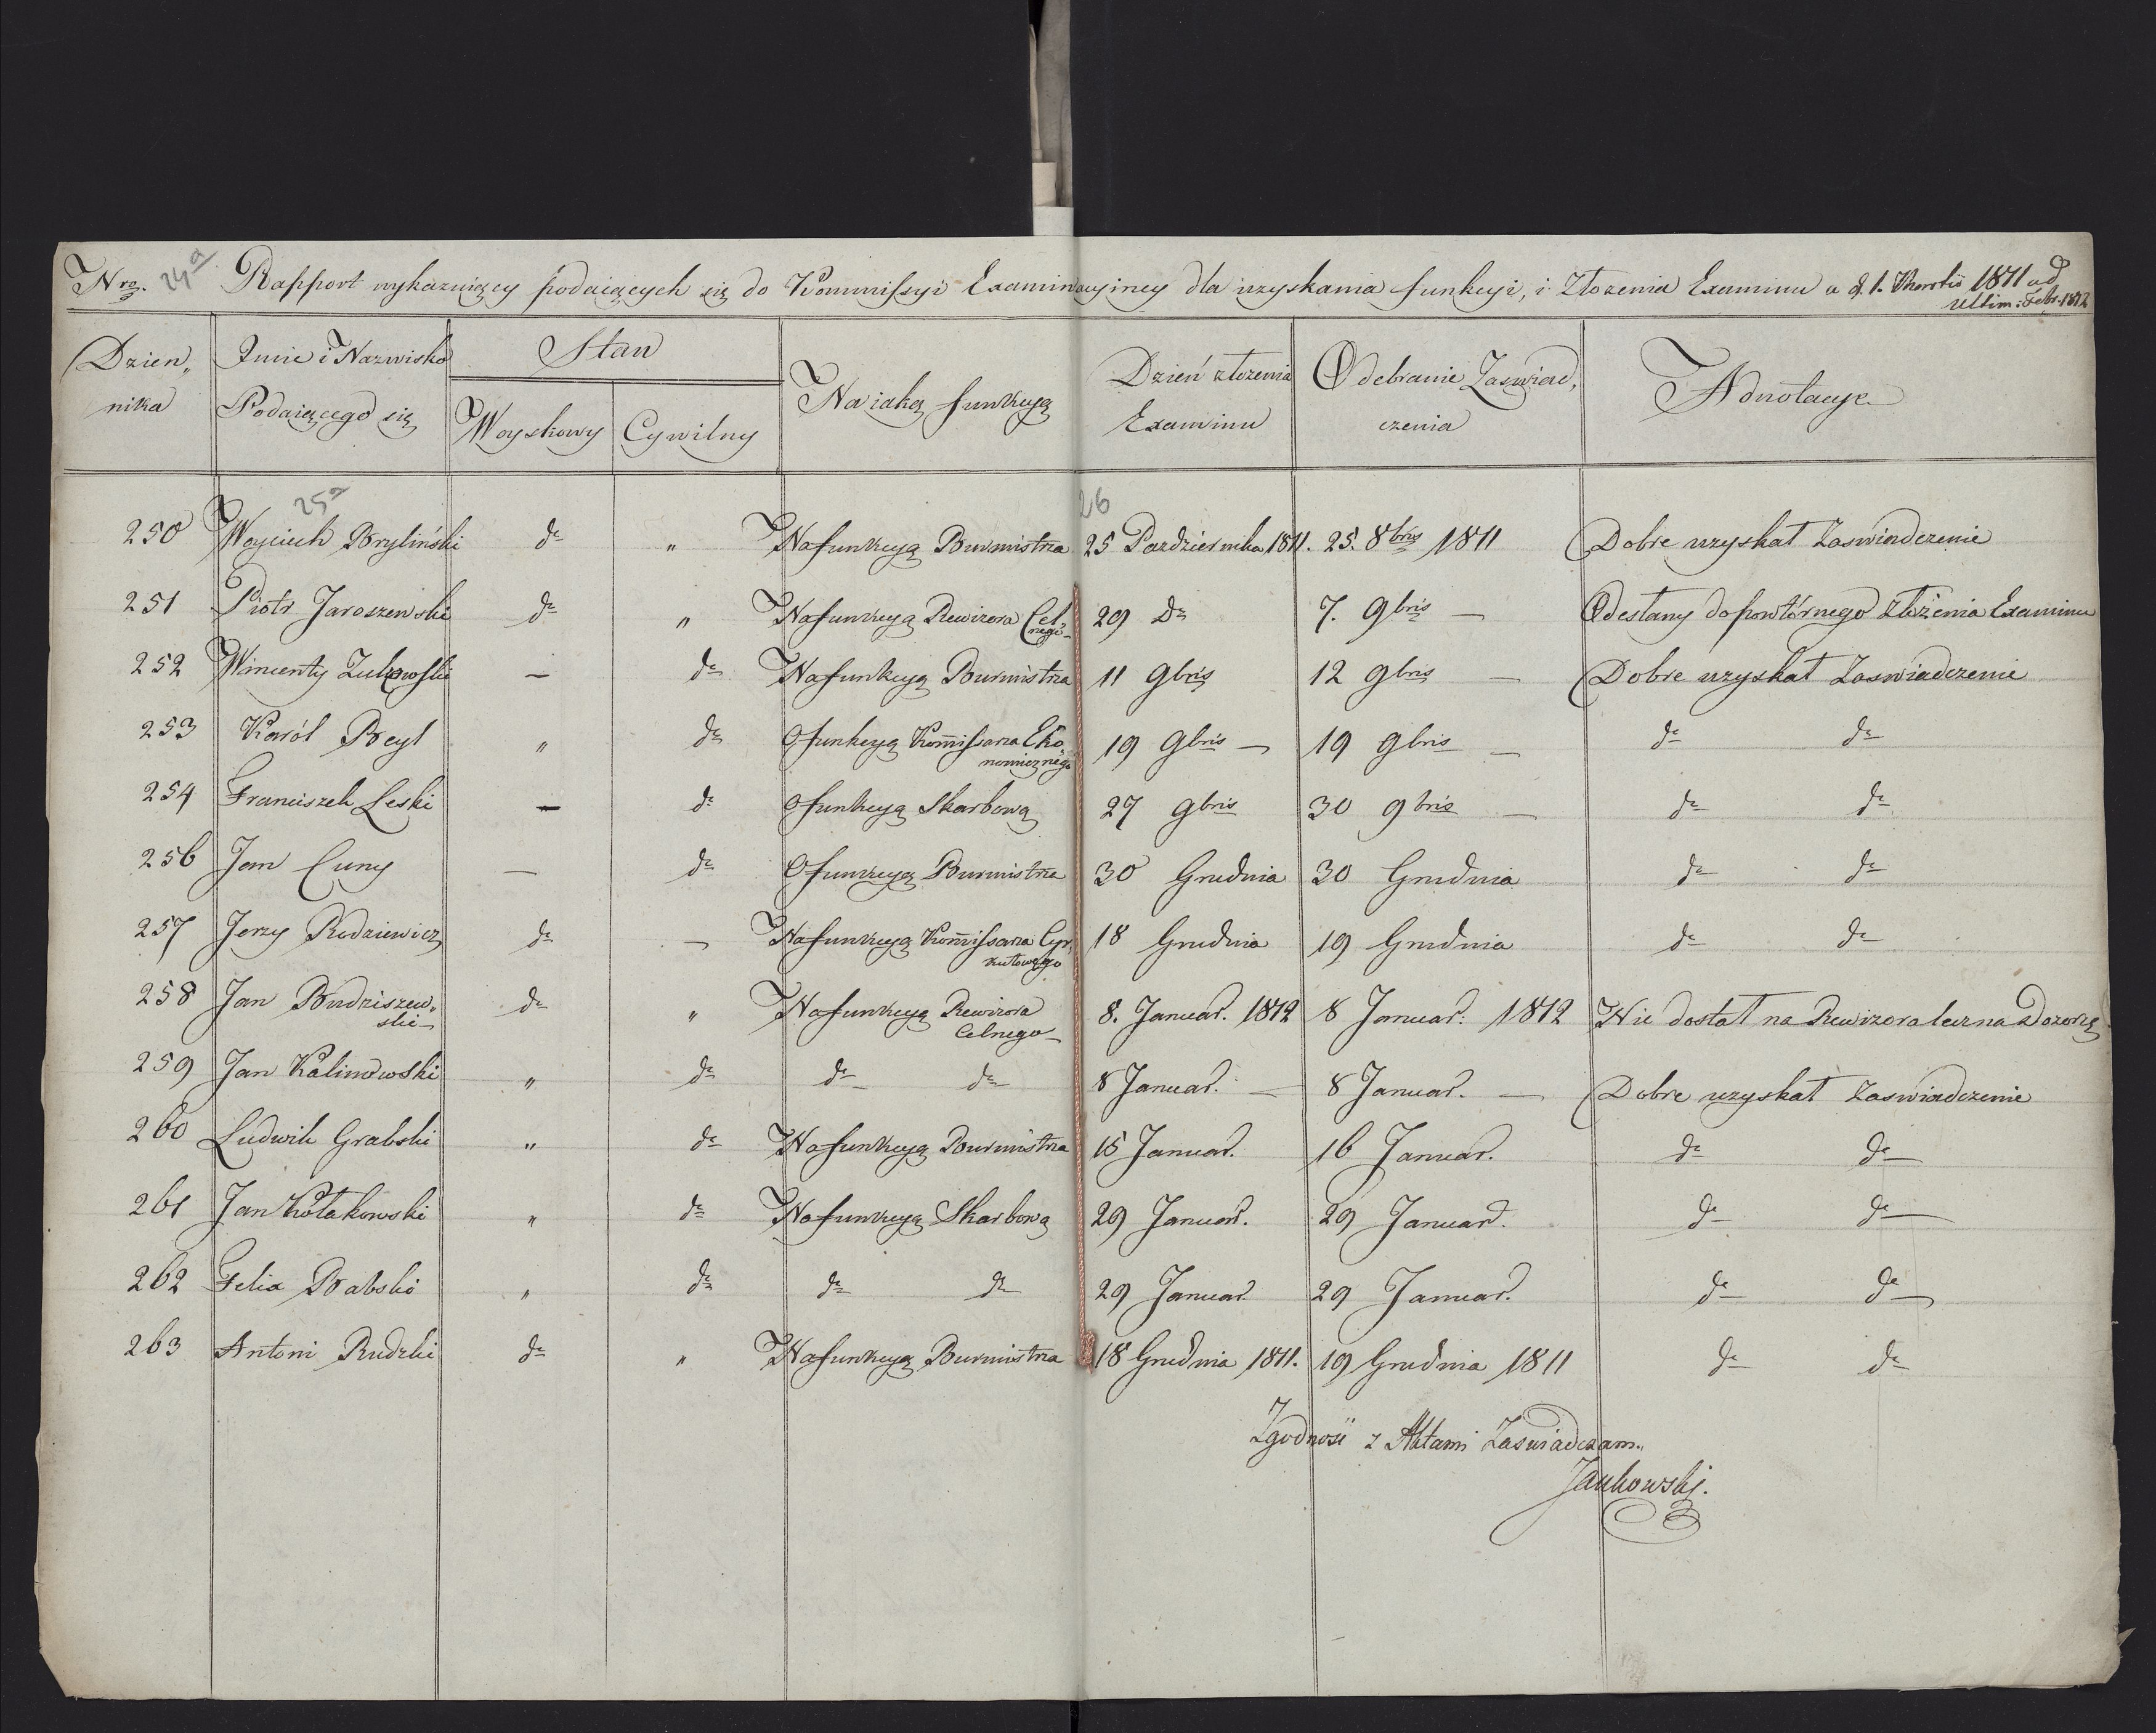 Nro. 24a Rapport wykazuiący podaiących się do Kommissyi Examinacyiney dla uzyskania funkcyi, i złożenia Examinu a d. 1. 1811 ad
Ultim: Febr. 1812
Dzien,
nika
Imie i Nazwisko
Podaiącego się
Stan
Woyskowy
Cywilny
Na iaką funkcyą
Dzień złożenia
Examinu
Odebranie Zaswiad,
czenia
Adnotacye
25a
26
250 Woyciech Bryliński do " Na funkcyą Burmistrza 25 Pazdziernika 1811. 25. 8bris 1811 Dobre uzyskał Zaswiadczenie
251 Piotr Jaroszewski do " Na funkcyą Rewizora Cel,
nego
29 Do 7. 9bris — Odesłany do powtórnego złożenia Examinu
252 Wincenty Zukowski — do Na funkcyą Burmistrza 11 9bris 12 9bris — Dobre uzyskał Zaswiadczenie
253 Karól Beyl " do O funkcyą Kommissarza Eko,
nomicznego
19 9bris — 19 9bris — do do
254 Franciszek Leski — do O funkcyą Skarbową 27 9bris 30 9bris — do do
256 Jan Cuny — do O funkcyą Burmistrza 30 Grudnia 30 Grudnia do do
257 Jerzy Rodziewicz do — Na funkcyą Kommissarza Cyr,
kułowego
18 Grudnia 19 Grudnia do do
258 Jan Budziszew,
ski
do " Na funkcyą Rewizora
Celnego
8. Januar. 1812 8 Januar: 1812 Nie dostał na Rewizora lecz na Dozorcę
259 Jan Kalinowski " do do do 8 Januar. — 8 Januar. — Dobre uzyskał Zaswiadczenie
260 Ludwik Grabski " do Na funkcyą Burmistrza 15 Januar. 16 Januar. do do
261 Jan Kołakowski " do Na funkcyą Skarbową 29 Januar. 29 Januar. do do
262 Felix Babski " do do do 29 Januar. 29 Januar. do do
263 Antoni Rudzki do " Na funkcyą Burmistrza 18 Grudnia 1811. 19 Grudnia 1811 do do
Zgodność z Aktami Zaswiadczam.
Jankowski.